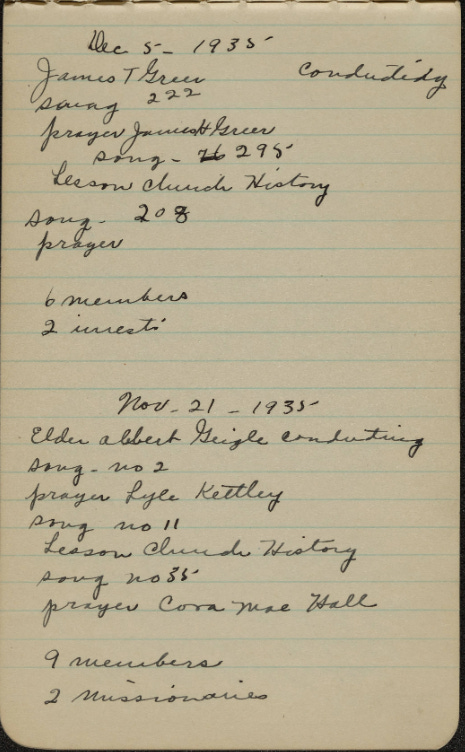 Dec 5 - 1935
James T Greer conductidg
song 222
prayer James H Greer
song - 295
Lesson church History
song - 208
prayer
6 members
2 invest
Nov - 21 - 1935
Elder albert Geigle conducting
song - no 2
prayer Lyle Kettley
song no 11
Lesson Church History
song no 35
prayer Cora Mae Hall
9 members
2 missionaries